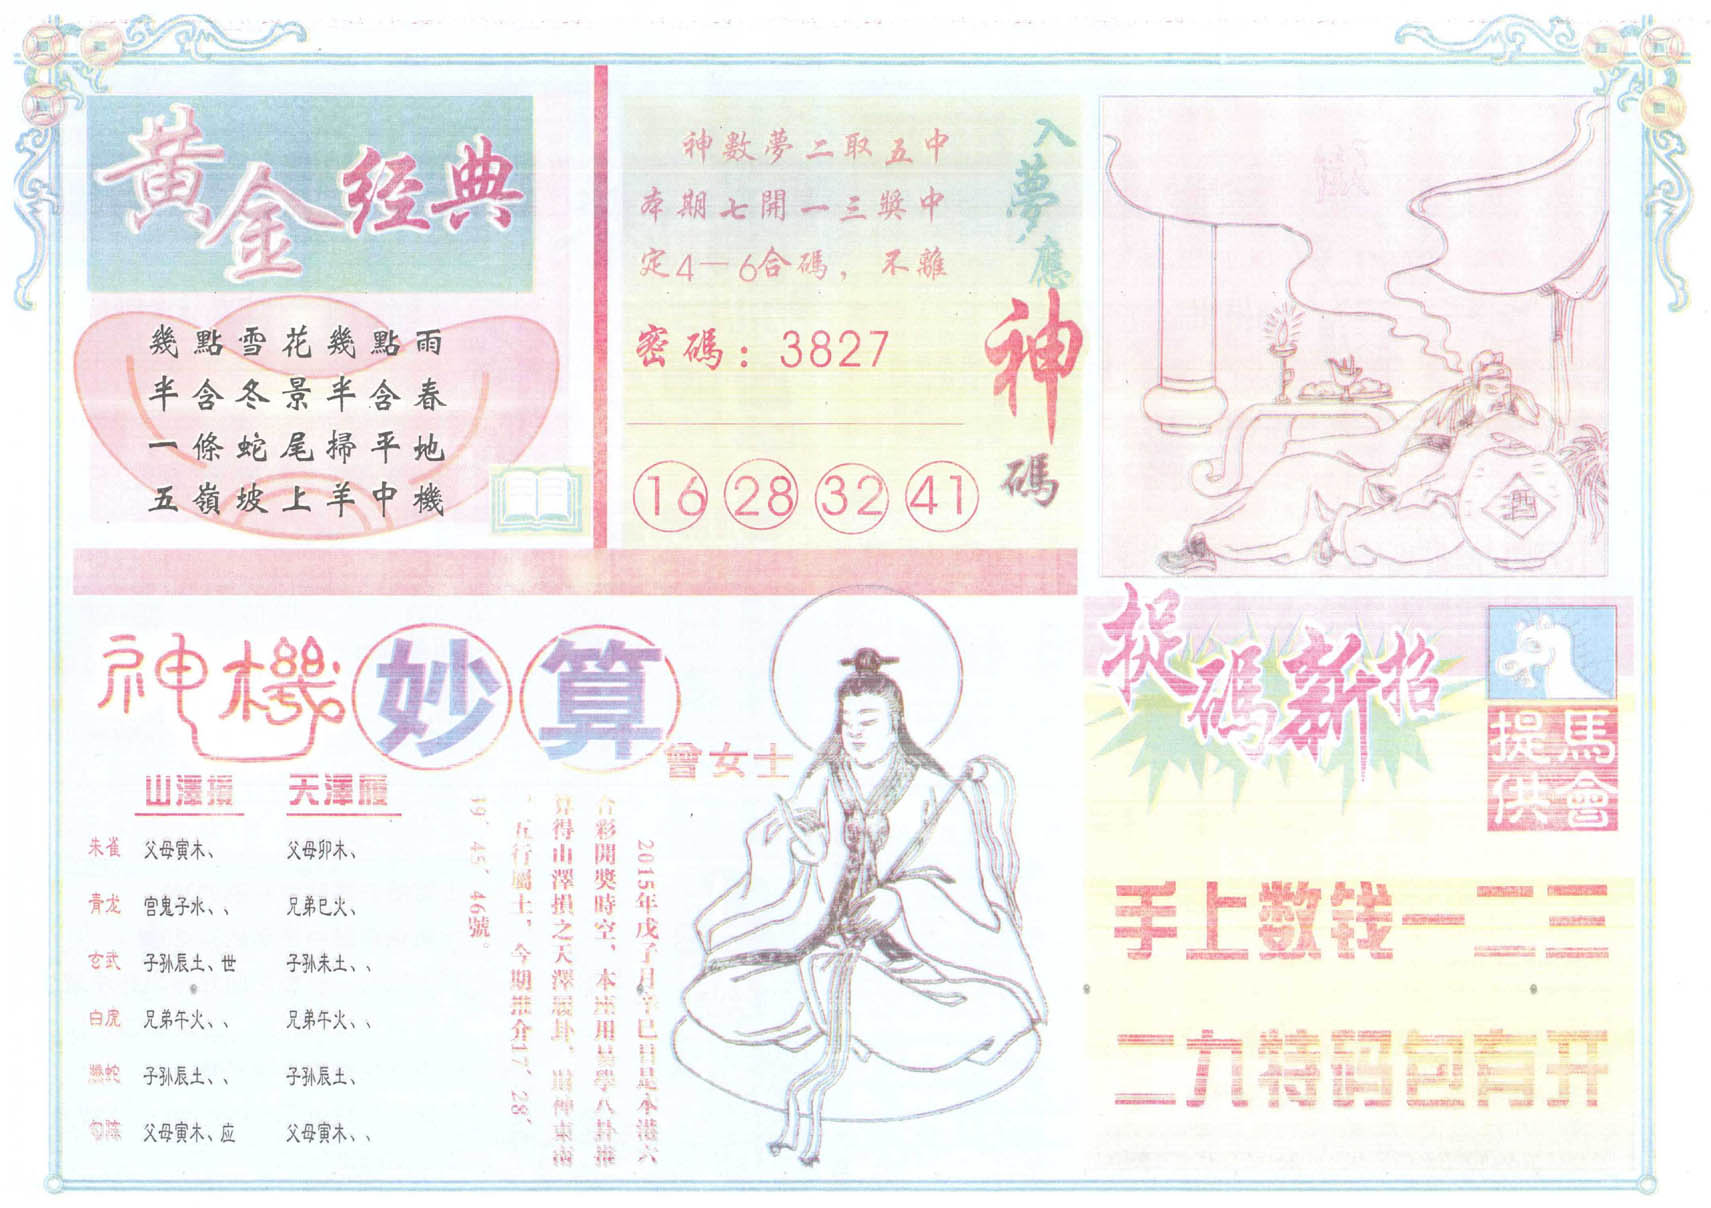 黃金经典
幾點雪花幾點雨
半含冬景半含春
一條蛇尾掃平地
五嶺坡上羊中機
神數夢二取五中
本期七開一三獎中
定4—6合碼，不離
密碼：3827
16 28 32 41
入夢應神碼
酒
神機妙算
曾女士
山澤損 天澤履
朱雀 父母寅木、 父母卯木、
青龙 官鬼子水、、 兄弟巳火、
玄武 子孙辰土、世 子孙未土、、
白虎 兄弟午火、、 兄弟午火、、
螣蛇 子孙辰土、、 子孙辰土、
勾陈 父母寅木、应 父母寅木、、
2015年戊子月辛巳日是本港六
合彩開獎時空，本座用易學八卦推
算得山澤損之天澤履卦，財神東南
，五行屬土，今期推介17、28、
19、45、46號。
捉碼新招
馬會
提供
手上数钱一二三
二九特码包有开